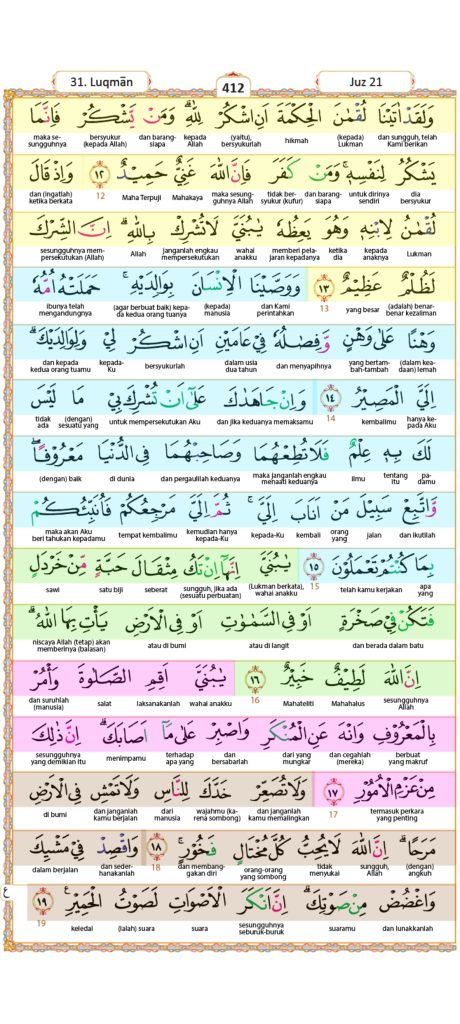 31. Luqmān
412
Juz 21
وَلَقَدْ اٰتَيْنَا لُقْمٰنَ الْحِكْمَةَ اَنِ اشْكُرْ لِلّٰهِ ۗوَمَنْ يَّشْكُرْ فَاِنَّمَا
dan sungguh, telah Kami berikan (kepada) Lukman hikmah (yaitu), bersyukurlah kepada Allah dan barang-siapa bersyukur (kepada Allah) maka se-sungguhnya
يَشْكُرُ لِنَفْسِهٖۚ وَمَنْ كَفَرَ فَاِنَّ اللّٰهَ غَنِيٌّ حَمِيْدٌ ١٢ وَاِذْ قَالَ
dia bersyukur untuk dirinya sendiri dan barang-siapa tidak ber-syukur (kufur) maka sesung-guhnya Allah Mahakaya Maha Terpuji 12 dan (ingatlah) ketika berkata
لُقْمٰنُ لِابْنِهٖ وَهُوَ يَعِظُهٗ يٰبُنَيَّ لَا تُشْرِكْ بِاللّٰهِ ۗاِنَّ الشِّرْكَ
Lukman kepada anaknya ketika dia memberi pela-jaran kepadanya wahai anakku janganlah engkau mempersekutukan Allah sesungguhnya mem-persekutukan (Allah)
لَظُلْمٌ عَظِيْمٌ ١٣ وَوَصَّيْنَا الْاِنْسَانَ بِوَالِدَيْهِۚ حَمَلَتْهُ اُمُّهٗ
(adalah) benar-benar kezaliman yang besar 13 dan Kami perintahkan (kepada) manusia (agar berbuat baik) kepa-da kedua orang tuanya ibunya telah mengandungnya
وَهْنًا عَلٰى وَهْنٍ وَّفِصَالُهٗ فِيْ عَامَيْنِ اَنِ اشْكُرْ لِيْ وَلِوَالِدَيْكَۗ
(dalam kea-daan) lemah yang bertam-bah-tambah dan menyapihnya dalam usia dua tahun bersyukurlah kepada-Ku dan kepada kedua orang tuamu
اِلَيَّ الْمَصِيْرُ ١٤ وَاِنْ جَاهَدٰكَ عَلٰٓى اَنْ تُشْرِكَ بِيْ مَا لَيْسَ
hanya ke-pada Aku kembalimu 14 dan jika keduanya memaksamu untuk mempersekutukan Aku (dengan) sesuatu yang tidak ada
لَكَ بِهٖ عِلْمٌ فَلَا تُطِعْهُمَا وَصَاحِبْهُمَا فِى الدُّنْيَا مَعْرُوْفًاۖ
pa-damu tentang itu ilmu maka janganlah engkau menaati keduanya dan pergaulilah keduanya di dunia (dengan) baik
وَّاتَّبِعْ سَبِيْلَ مَنْ اَنَابَ اِلَيَّۚ ثُمَّ اِلَيَّ مَرْجِعُكُمْ فَاُنَبِّئُكُمْ
dan ikutilah jalan orang yang kembali kepada-Ku kemudian hanya kepada-Ku tempat kembalimu maka akan Aku beri tahukan kepadamu
بِمَا كُنْتُمْ تَعْمَلُوْنَ ١٥ يٰبُنَيَّ اِنَّهَآ اِنْ تَكُ مِثْقَالَ حَبَّةٍ مِّنْ خَرْدَلٍ
apa yang telah kamu kerjakan 15 (Lukman berkata), wahai anakku sungguh, jika ada (sesuatu perbuatan) seberat satu biji sawi
فَتَكُنْ فِيْ صَخْرَةٍ اَوْ فِى السَّمٰوٰتِ اَوْ فِى الْاَرْضِ يَأْتِ بِهَا اللّٰهُ ۗ
dan berada dalam batu atau di langit atau di bumi niscaya Allah (tetap) akan memberinya (balasan)
اِنَّ اللّٰهَ لَطِيْفٌ خَبِيْرٌ ١٦ يٰبُنَيَّ اَقِمِ الصَّلٰوةَ وَأْمُرْ
sesungguhnya Allah Mahahalus Mahateliti 16 wahai anakku laksanakanlah salat dan suruhlah (manusia)
بِالْمَعْرُوْفِ وَانْهَ عَنِ الْمُنْكَرِ وَاصْبِرْ عَلٰى مَآ اَصَابَكَۗ اِنَّ ذٰلِكَ
berbuat yang makruf dan cegahlah (mereka) dari yang mungkar dan bersabarlah terhadap apa yang menimpamu sesungguhnya yang demikian itu
مِنْ عَزْمِ الْاُمُوْرِ ١٧ وَلَا تُصَعِّرْ خَدَّكَ لِلنَّاسِ وَلَا تَمْشِ فِى الْاَرْضِ
termasuk perkara yang penting 17 dan janganlah kamu memalingkan wajahmu (ka-rena sombong) dari manusia dan janganlah kamu berjalan di bumi
مَرَحًاۗ اِنَّ اللّٰهَ لَا يُحِبُّ كُلَّ مُخْتَالٍ فَخُوْرٍۚ ١٨ وَاقْصِدْ فِيْ مَشْيِكَ
(dengan) angkuh sungguh, Allah tidak menyukai orang-orang yang sombong dan membang-gakan diri 18 dan seder-hanakanlah dalam berjalan
وَاغْضُضْ مِنْ صَوْتِكَۗ اِنَّ اَنْكَرَ الْاَصْوَاتِ لَصَوْتُ الْحَمِيْرِ ࣖ ١٩
dan lunakkanlah suaramu sesungguhnya seburuk-buruk suara (ialah) suara keledai 19
ع